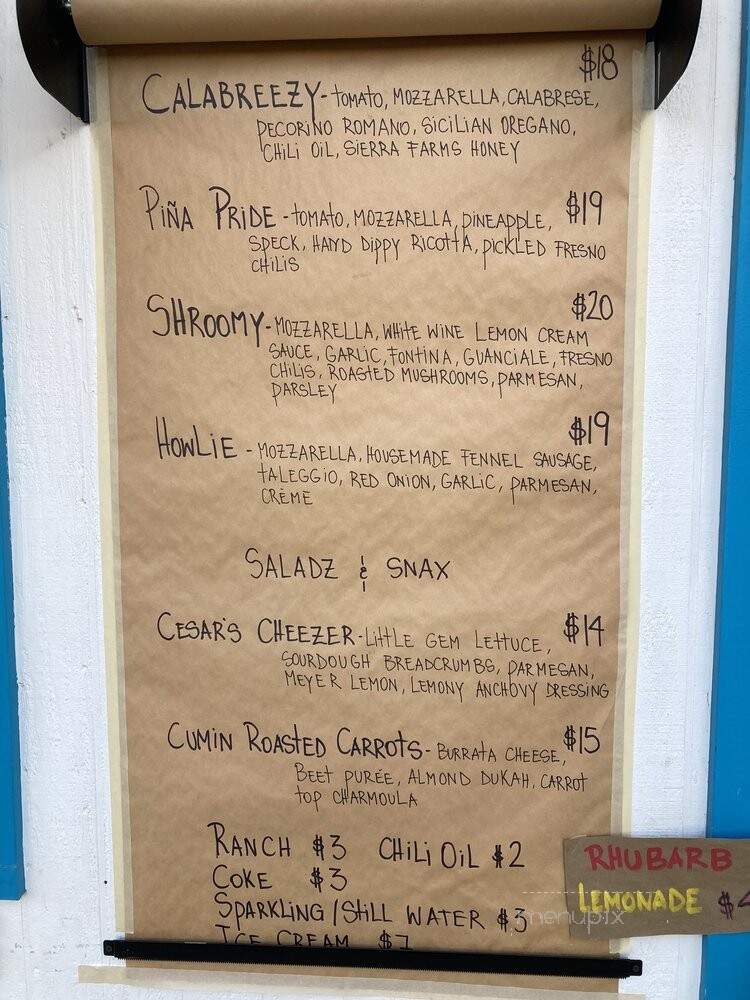 $18
CALABREEZY - TOMATO, MOZZARELLA, CALABRESE,
PECORINO ROMANO, SICILIAN OREGANO,
CHILI OIL, SIERRA FARMS HONEY
PIÑA PRIDE - TOMATO, MOZZARELLA, PINEAPPLE, $19
SPECK, HAND DIPPY RICOTTA, PICKLED FRESNO
CHILIS
$20
SHROOMY - MOZZARELLA, WHITE WINE LEMON CREAM
SAUCE, GARLIC, FONTINA, GUANCIALE, FRESNO
CHILIS, ROASTED MUSHROOMS, PARMESAN,
PARSLEY
$19
HOWLIE - MOZZARELLA, HOUSEMADE FENNEL SAUSAGE,
TALEGGIO, RED ONION, GARLIC, PARMESAN,
CRÈME
SALADZ & SNAX
CESAR'S CHEEZER - LITTLE GEM LETTUCE, $14
SOURDOUGH BREADCRUMBS, PARMESAN,
MEYER LEMON, LEMONY ANCHOVY DRESSING
CUMIN ROASTED CARROTS - BURRATA CHEESE, $15
BEET PURÉE, ALMOND DUKAH, CARROT
TOP CHARMOULA
RANCH $3 CHILI OIL $2
COKE $3
SPARKLING / STILL WATER $3
ICE CREAM $7
RHUBARB
LEMONADE $4
menupix